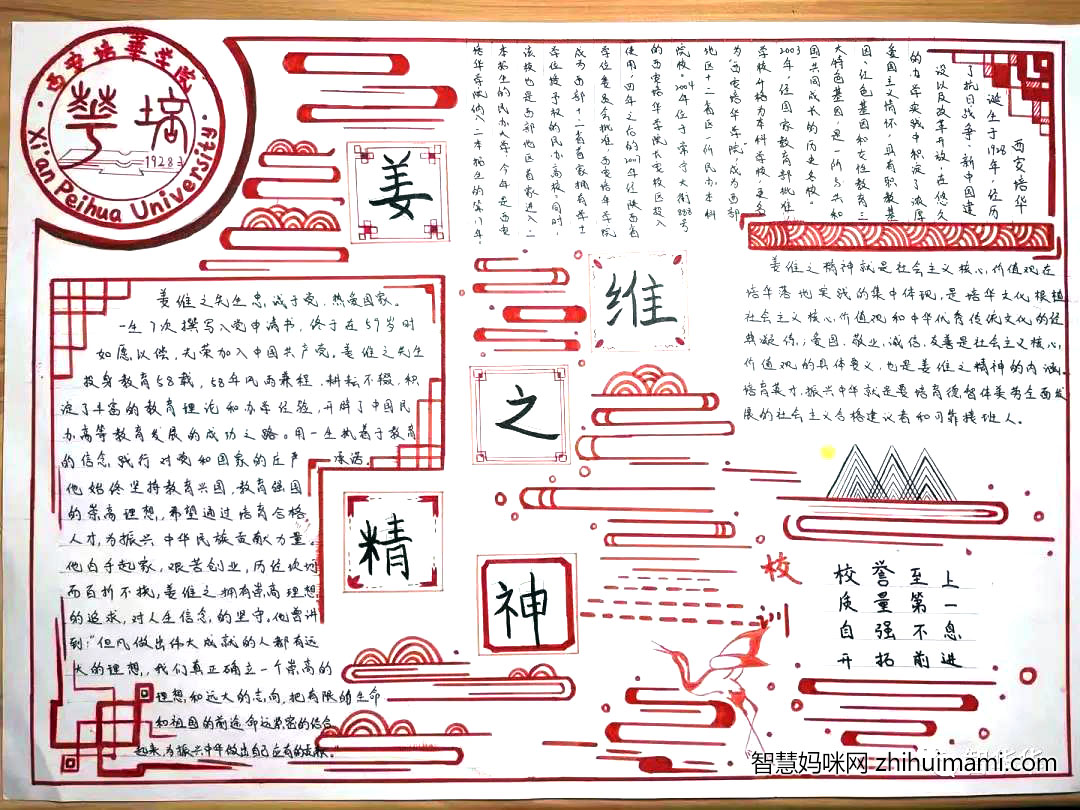 西安培華学院
華培
1928
Xi'an Peihua University
姜
维
之
精
神
西安培华
诞生于1928年，经历
了抗日战争、新中国建
设以及改革开放，在悠久
的办学实践中积淀了浓厚
爱国主义情怀，具有职教基
因、红色基因和女性教育三
大特色基因，是一所与共和
国共同成长的历史名校。
2003年，经国家教育部批准
学校升格为本科学校，更名
为"西安培华学院"，成为西部
地区十二省区一所民办本科
院校。2004年位于常宁大街888号
的西安培华学院长安校区投入
使用，四年之后的2007年经陕西省
学位委员会批准，西安培华学院
成为西部十二省首家拥有学士
学位授予权的民办高校。同时，
该校也是西部地区首家进入二
本招生的民办大学，今年是西安
培华学院纳入二本招生的第八年。
姜维之精神就是社会主义核心价值观在
培华落地实践的集中体现，是培华文化根植
社会主义核心价值观和中华优秀传统文化的经
典凝传，爱国、敬业、诚信、友善是社会主义核心
价值观的具体要义，也是姜维之精神的内涵
培育英才，振兴中华就是要培育德智体美劳全面发
展的社会主义合格建设者和可靠接班人。
姜维之先生忠诚于党，热爱国家。
一生7次撰写入党申请书，终于在59岁时
如愿以偿，光荣加入中国共产党。姜维之先生
投身教育58载，58年风雨兼程，耕耘不辍，积
淀了丰富的教育理论和办学经验，开辟了中国民
办高等教育发展的成功之路。用一生执着于教育
的信念，践行对党和国家的庄严承诺。
他始终坚持教育兴国，教育强国
的崇高理想，希望通过培育合格
人才，为振兴中华民族贡献力量。
他白手起家，艰苦创业，历经坎坷
而百折不挠，姜维之拥有崇高理想
的追求，对人生信念的坚守。他曾讲
到："但凡做出伟大成就的人都有远
大的理想，我们真正确立一个崇高的
理想和远大的志向，把有限的生命
和祖国的前途命运紧密的结合
起来，为振兴中华做出自己应有的贡献。"
校训
校誉至上
质量第一
自强不息
开拓前进
智慧妈咪网 zhihuimami.com